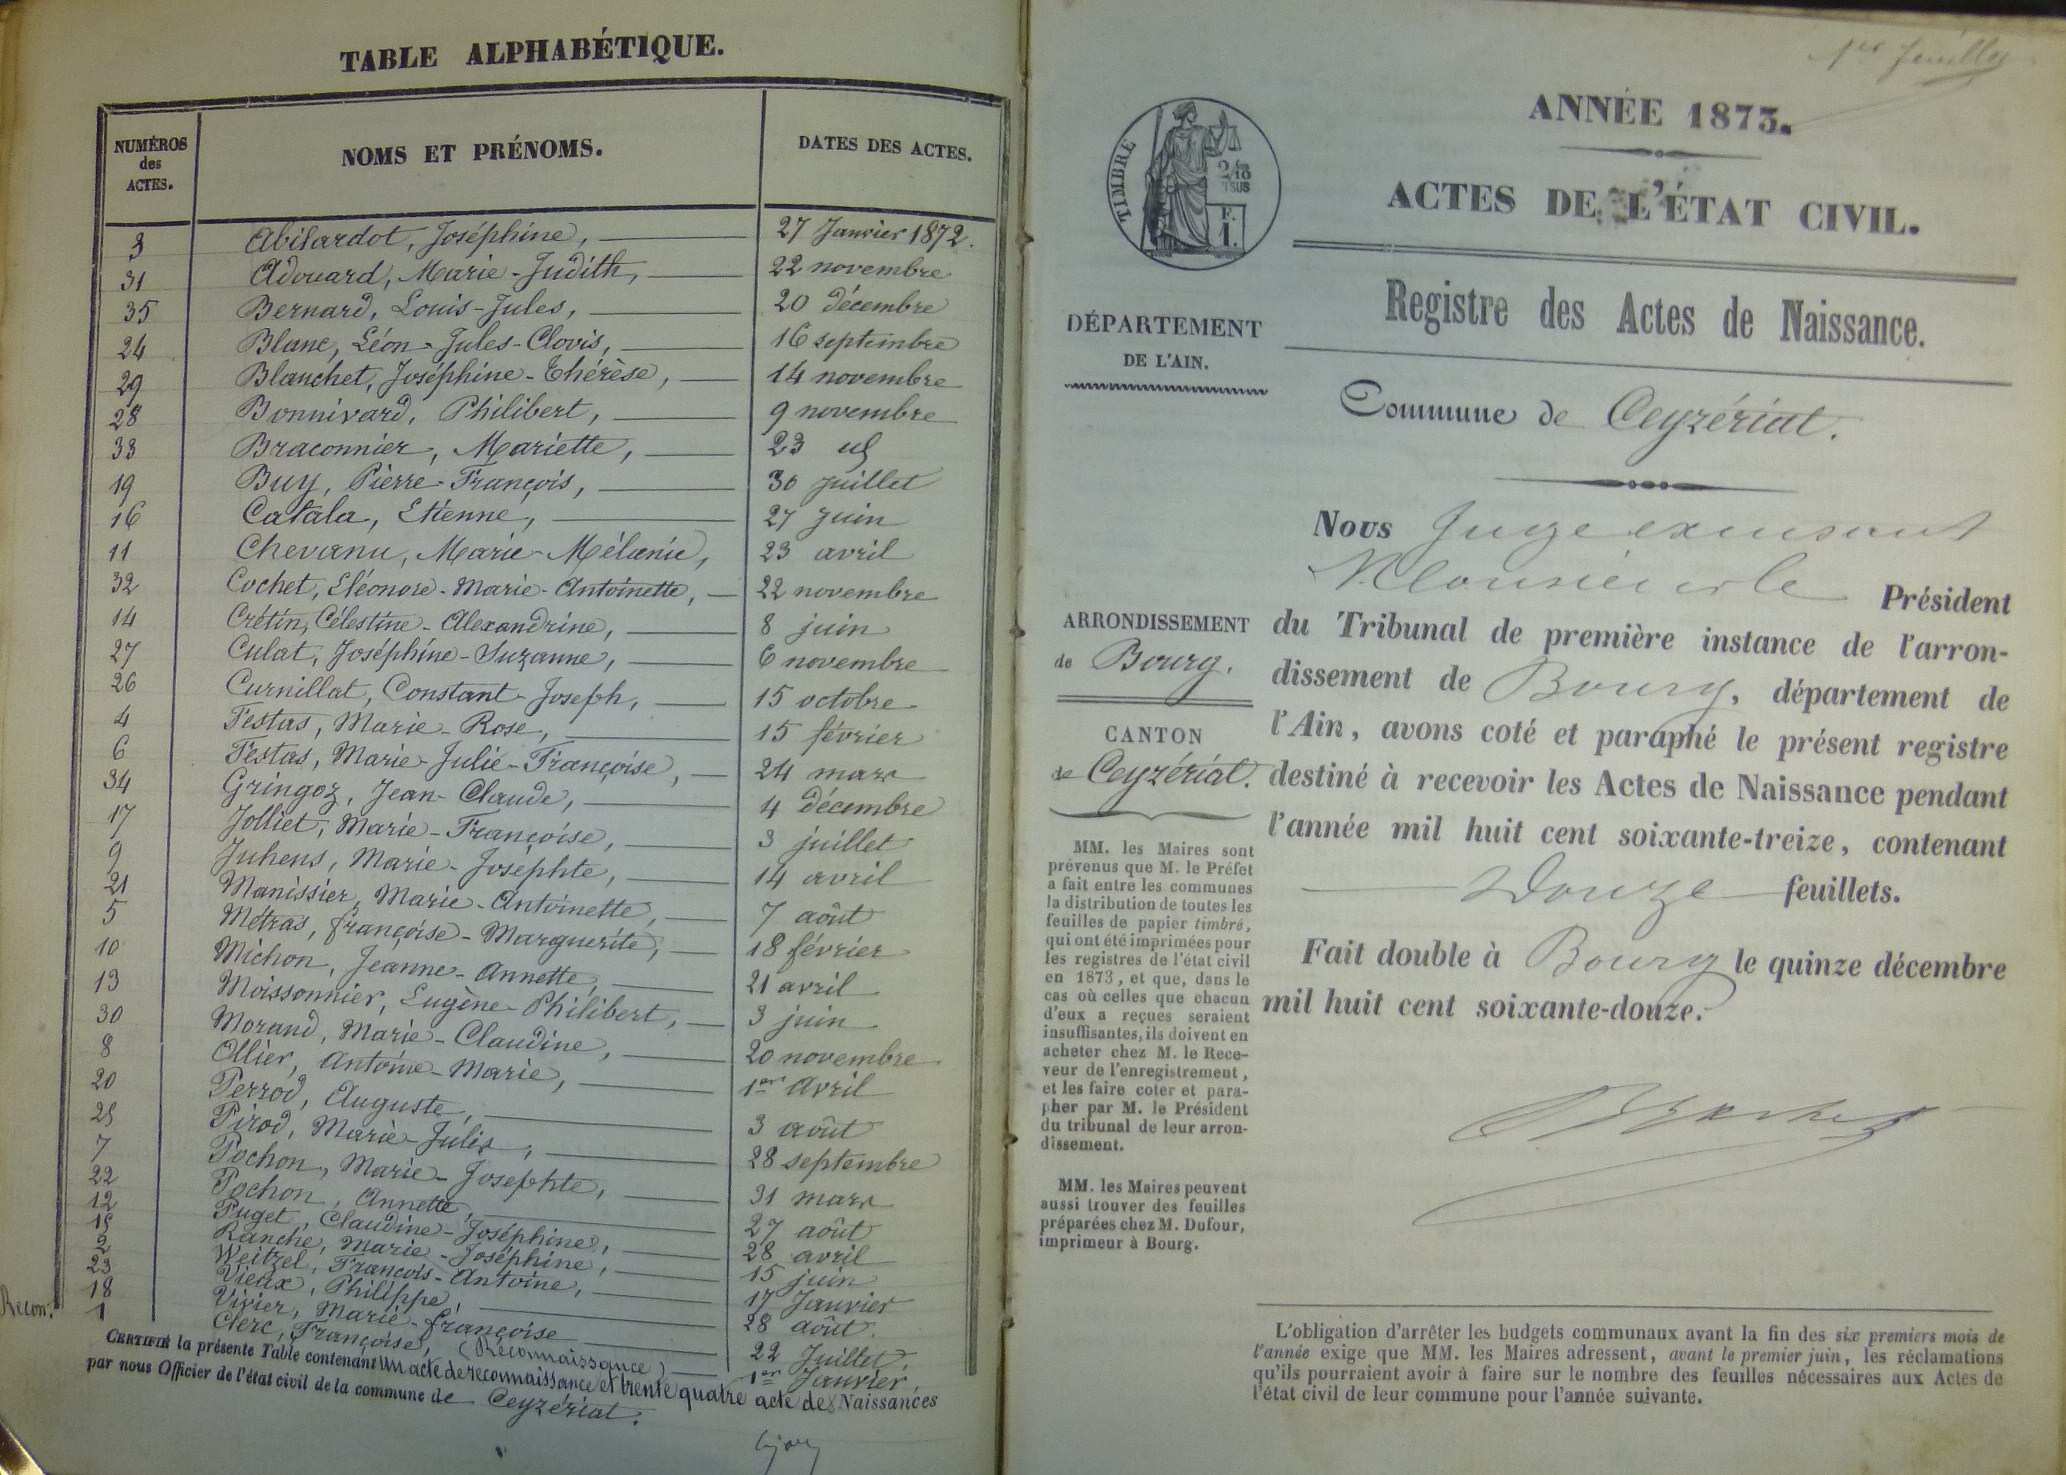 TABLE ALPHABÉTIQUE.
NUMÉROS des ACTES. NOMS ET PRÉNOMS. DATES DES ACTES.
3 Abilardot, Joséphine, 27 Janvier 1872.
31 Adouard, Marie-Judith, 22 novembre
35 Bernard, Louis-Jules, 20 décembre
24 Blanc, Léon-Jules-Clovis, 16 septembre
29 Blanchet, Joséphine-Thérèse, 14 novembre
28 Bonnivard, Philibert, 9 novembre
33 Braconnier, Mariette, 23 id
19 Buy, Pierre-François, 30 juillet
16 Catala, Etienne, 27 juin
11 Chevanu, Marie-Mélanie, 23 avril
32 Cochet, Eléonore-Marie-Antoinette, 22 novembre
14 Crétin, Célestine-Alexandrine, 8 juin
27 Culat, Joséphine-Suzanne, 6 novembre
26 Curnillat, Constant-Joseph, 15 octobre
4 Festas, Marie-Rose, 15 février
6 Festas, Marie-Julie-Françoise, 24 mars
34 Gringoz, Jean-Claude, 4 décembre
17 Jolliet, Marie-Françoise, 3 juillet
9 Juhens, Marie-Josephte, 14 avril
21 Manissier, Marie-Antoinette, 7 août
5 Métras, françoise-Marguerite, 18 février
10 Michon, Jeanne-Annette, 21 avril
13 Moissonnier, Eugène-Philibert, 3 juin
30 Morand, Marie-Claudine, 20 novembre
8 Ollier, Antoine-Marie, 1er avril
20 Perrod, Auguste, 3 août
25 Pirod, Marie-Jules, 28 septembre
7 Pochon, Marie-Josephte, 31 mars
22 Pochon, Annette, 27 août
12 Puget, Claudine-Joséphine, 28 avril
15 Ranche, Marie-Joséphine, 15 juin
2 Weitzel, François-Antoine, 17 Janvier
23 Vieux, Philippe, 28 août.
18 Vivier, Marie-françoise 22 Juillet.
Recon. 1 Clerc, Françoise, (Reconnaissance) 1er Janvier.
CERTIFIÉ la présente Table contenant un acte de reconnaissance et trente quatre acte de Naissances
par nous Officier de l'état civil de la commune de Ceyzériat.
1er feuillet
ANNÉE 1873.
TIMBRE
2/10
F.
1.
ACTES DE L'ÉTAT CIVIL.
Registre des Actes de Naissance.
DÉPARTEMENT
DE L'AIN.
Commune de Ceyzériat.
ARRONDISSEMENT
de Bourg.
CANTON
de Ceyzériat.
MM. les Maires sont
prévenus que M. le Préfet
a fait entre les communes
la distribution de toutes les
feuilles de papier timbré,
qui ont été imprimées pour
les registres de l'état civil
en 1873, et que, dans le
cas où celles que chacun
d'eux a reçues seraient
insuffisantes, ils doivent en
acheter chez M. le Rece-
veur de l'enregistrement,
et les faire coter et para-
pher par M. le Président
du tribunal de leur arron-
dissement.
MM. les Maires peuvent
aussi trouver des feuilles
préparées chez M. Dufour,
imprimeur à Bourg.
Nous Juge excusant
Monsieur le Président
du Tribunal de première instance de l'arron-
dissement de Bourg, département de
l'Ain, avons coté et paraphé le présent registre
destiné à recevoir les Actes de Naissance pendant
l'année mil huit cent soixante-treize, contenant
Douze feuillets.
Fait double à Bourg le quinze décembre
mil huit cent soixante-douze.
L'obligation d'arrêter les budgets communaux avant la fin des six premiers mois de
l'année exige que MM. les Maires adressent, avant le premier juin, les réclamations
qu'ils pourraient avoir à faire sur le nombre des feuilles nécessaires aux Actes de
l'état civil de leur commune pour l'année suivante.